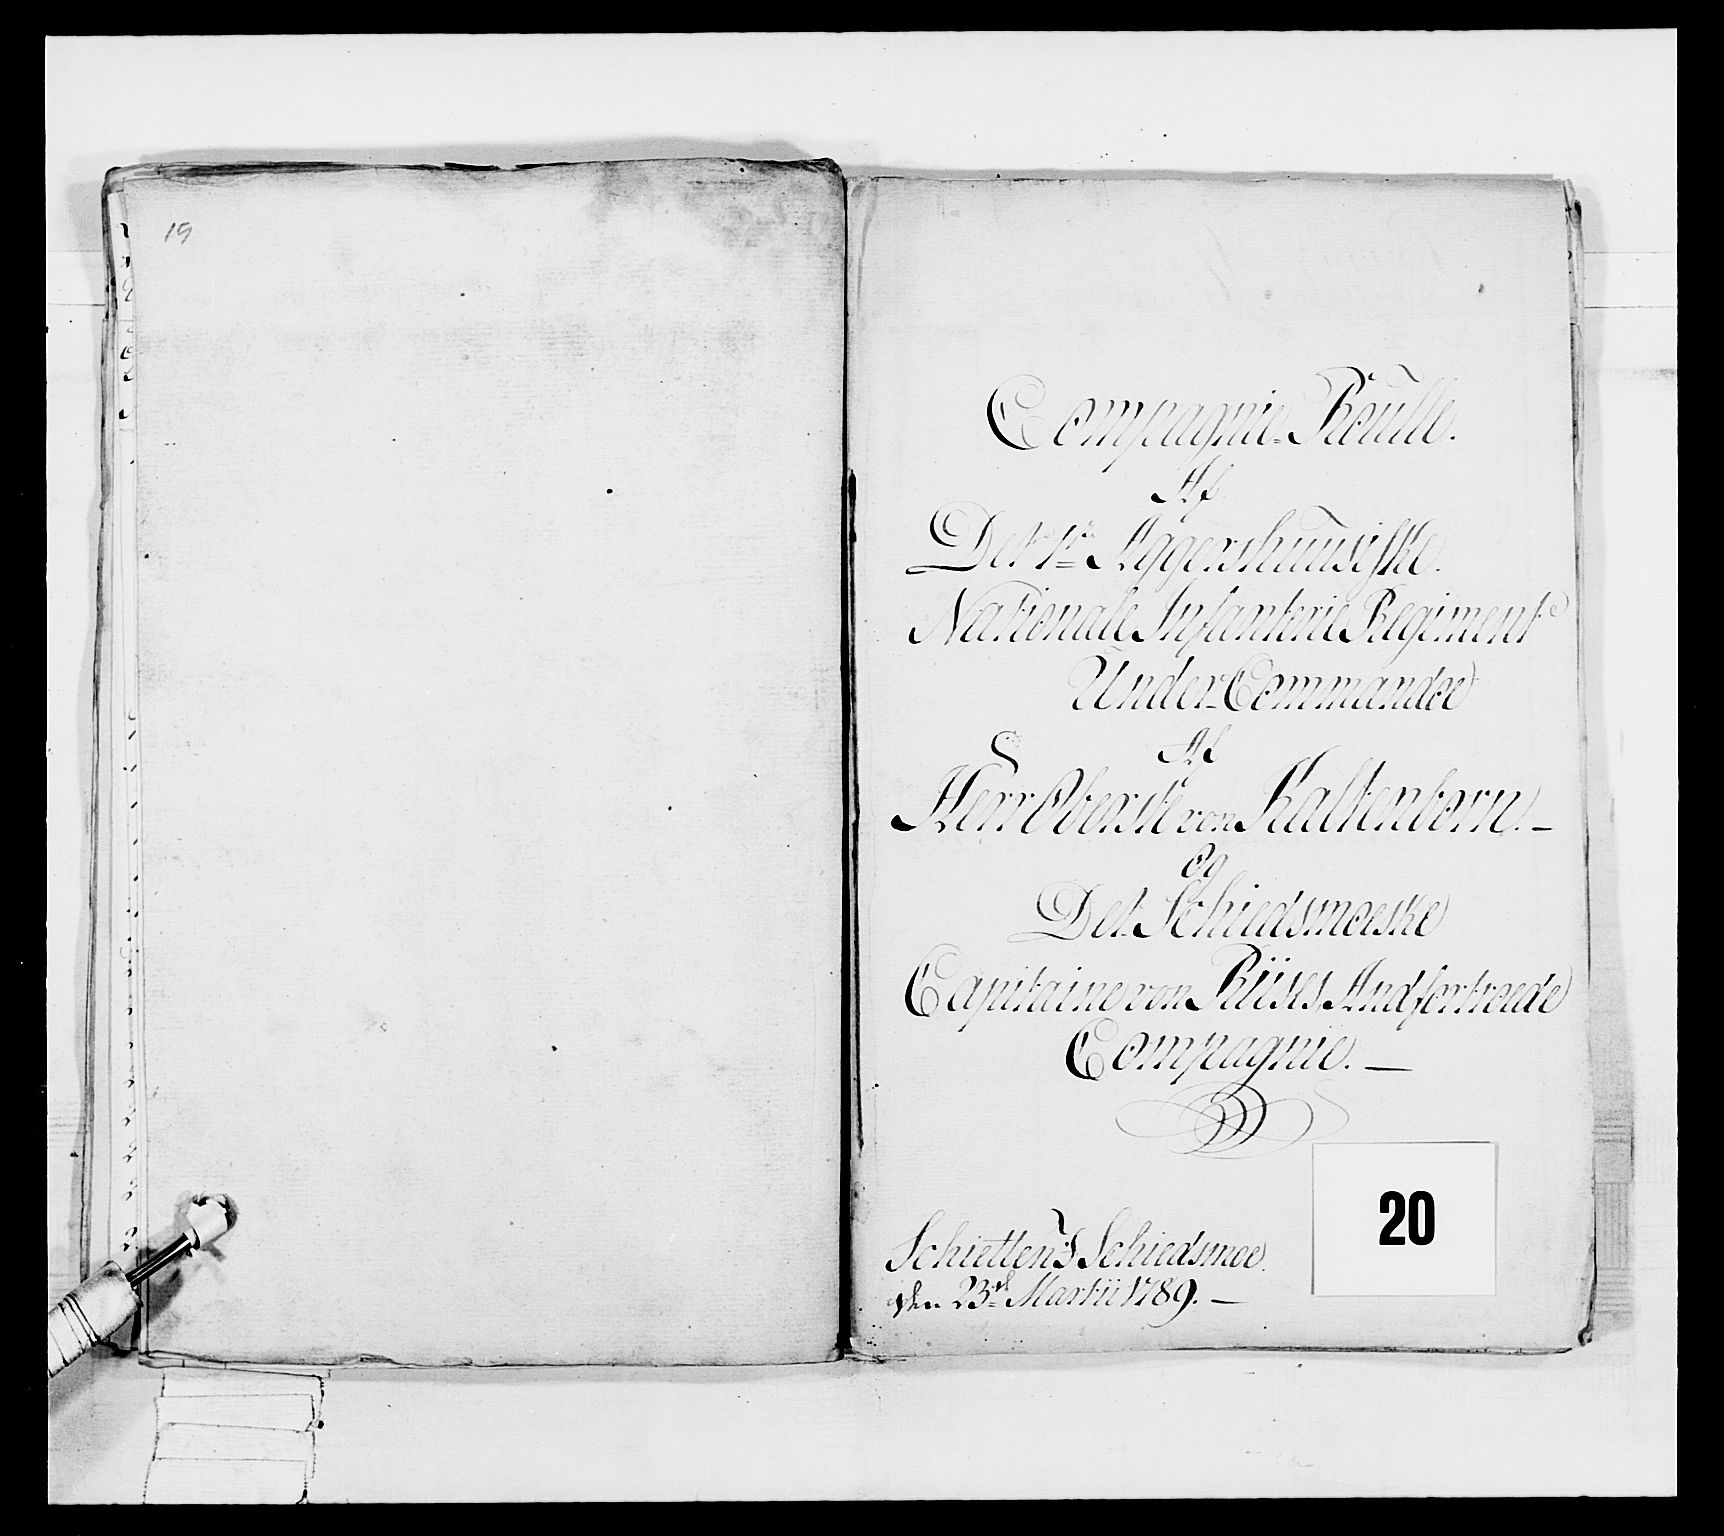 19
Compagnie-Roulle.
Af
Det 1te Aggershuusiske.
Nationale Infanterie Regiment
Under-Commandoe
Af
Herr Oberste von Kaltenborn. —
Og
Det Schiedsmoeske
Capitaine von Riises Andfortroede
Compagnie. —
Schietten Schiedsmoe.
den 23de Martii 1789. —
20